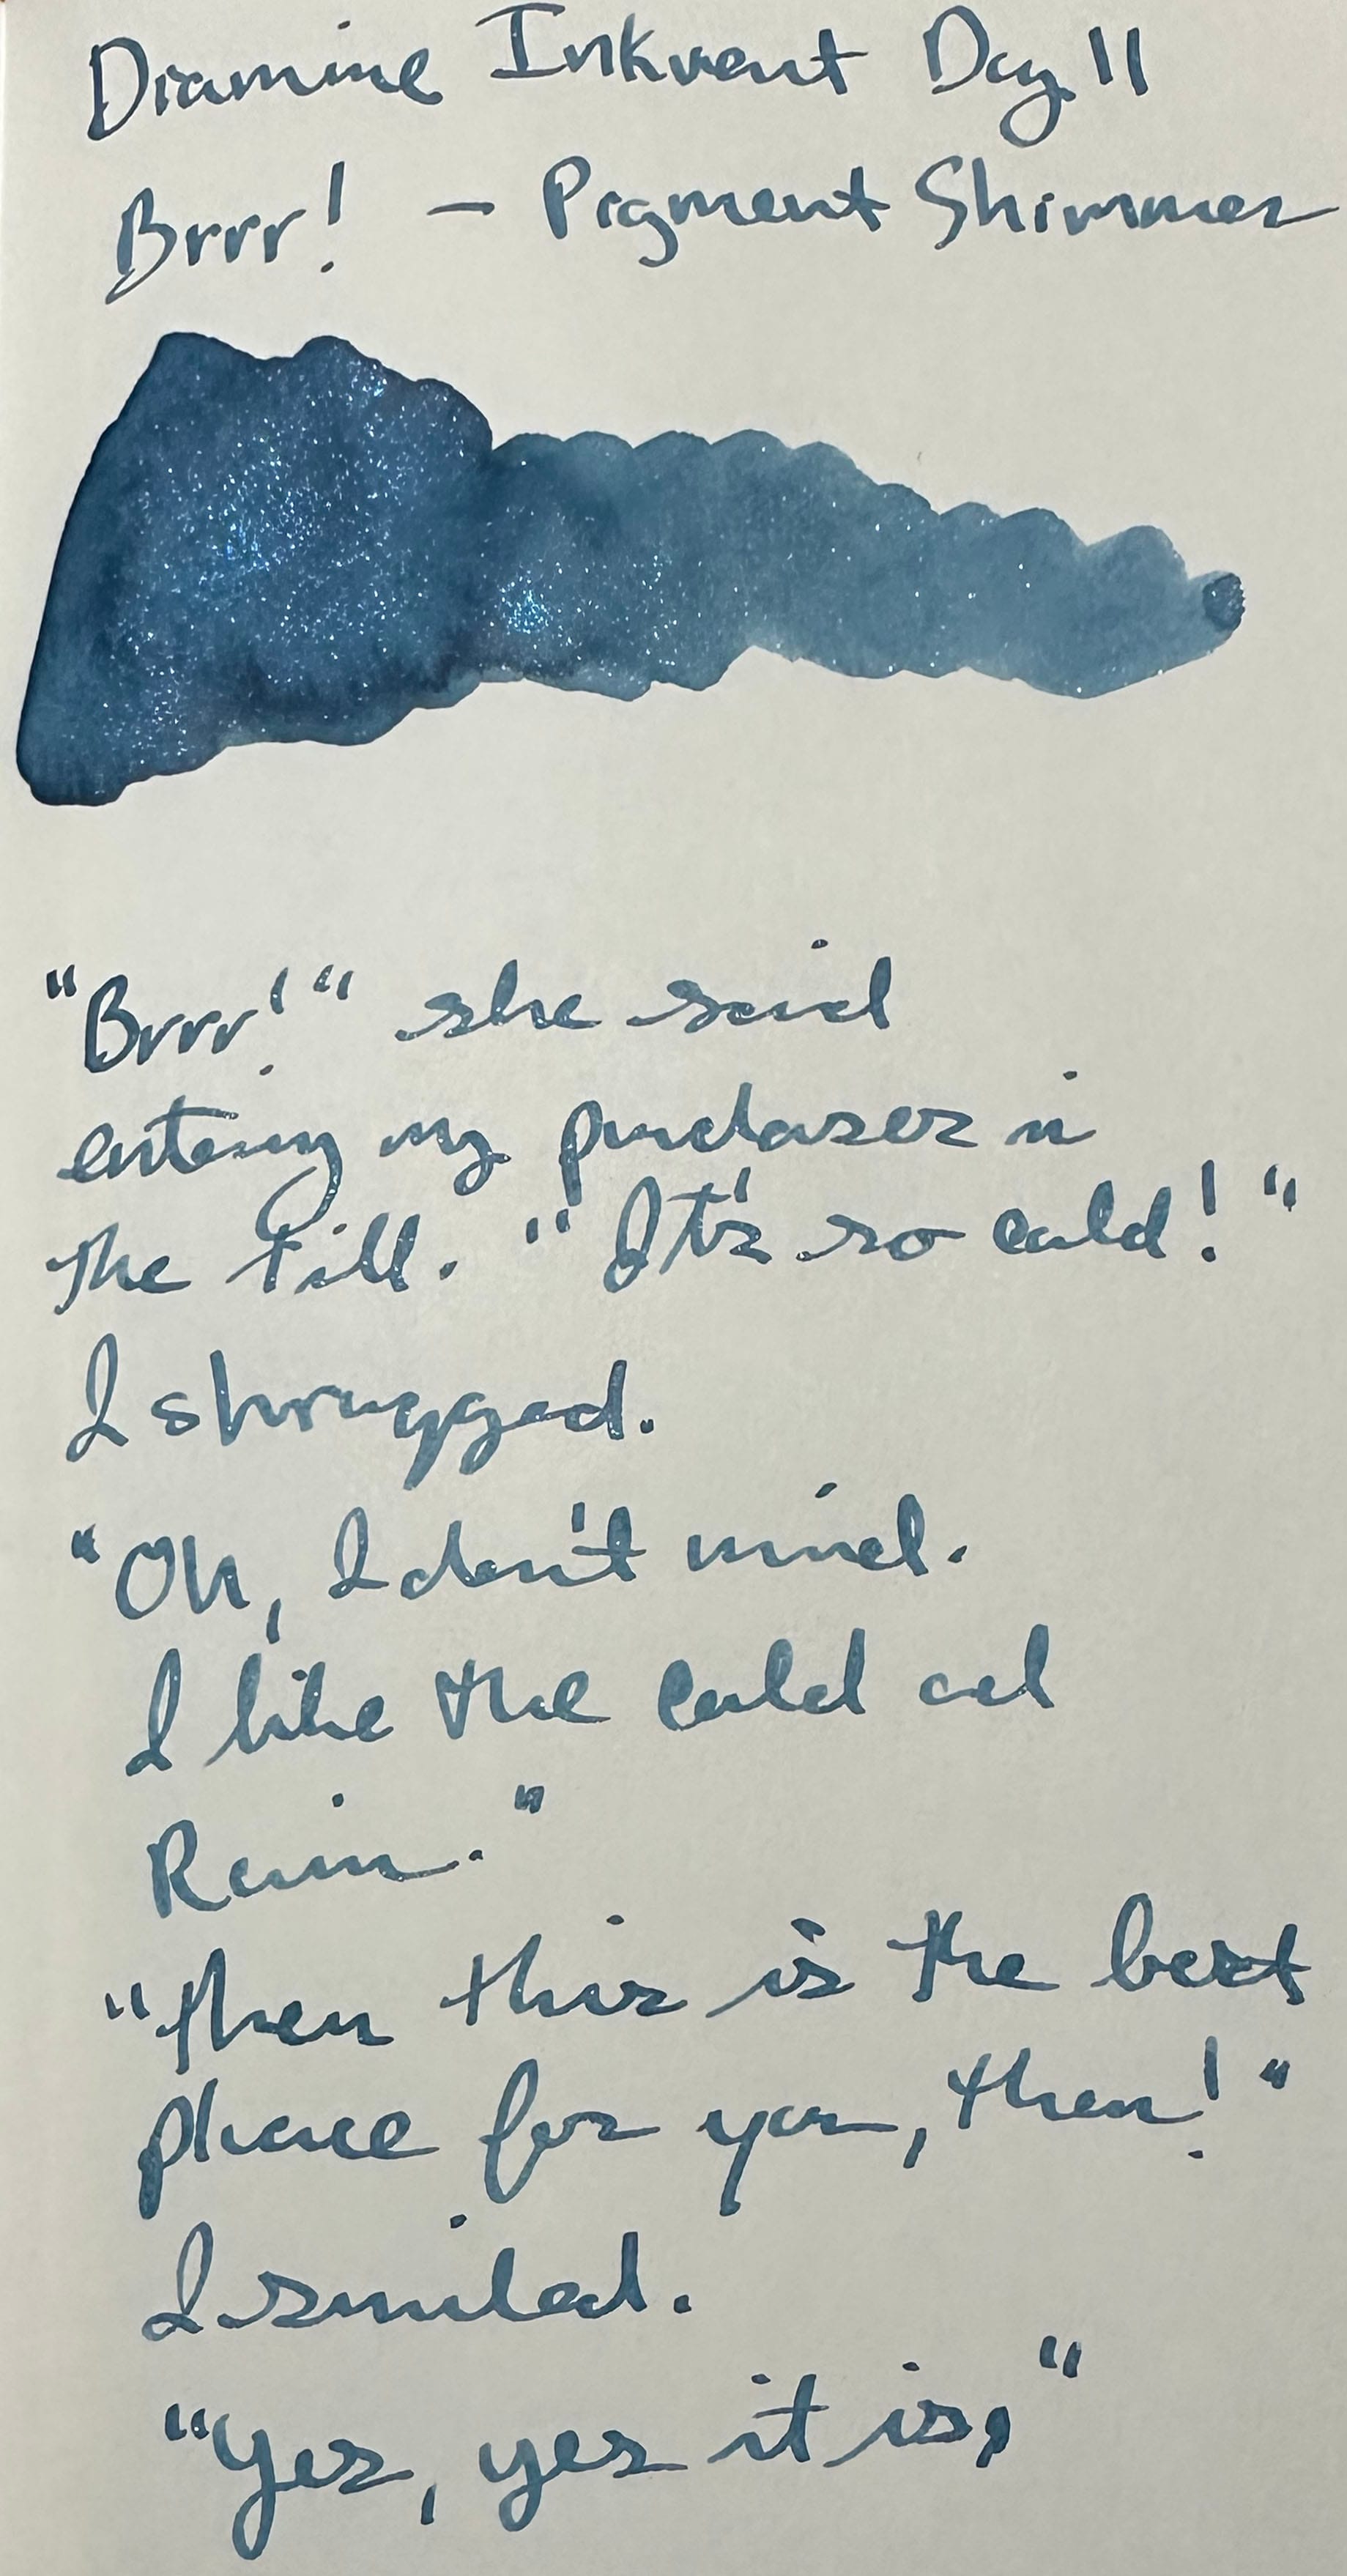 Diamine Inkvent Day 11
Brrr! – Pigment Shimmer
"Brrr!" she said
entering my purchases in
the till. "It's so cold!"
I shrugged.
"Oh, I don't mind.
I like the cold and
Rain."
"Then this is the best
place for you, then!"
I smiled.
"Yes, yes it is,"